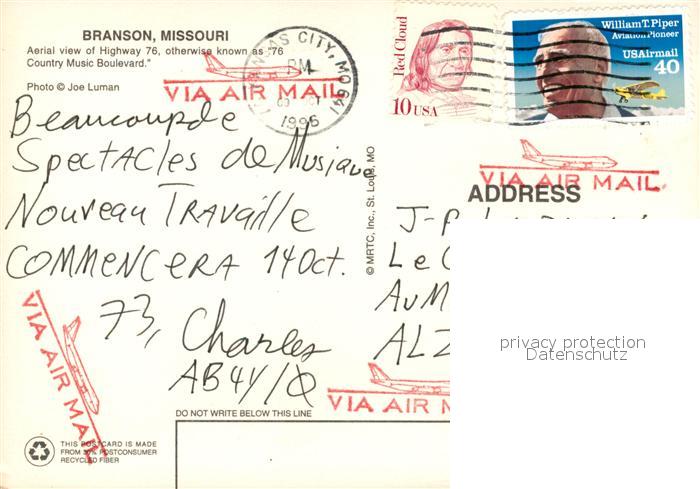 BRANSON, MISSOURI
Aerial view of Highway 76, otherwise known as "76
Country Music Boulevard."
Photo © Joe Luman
VIA AIR MAIL
KANSAS CITY, MO 641
PM
1996
Red Cloud
10 USA
William T. Piper
Aviation Pioneer
USAirmail
40
VIA AIR MAIL
Beaucoup de
Spectacles de Musique
Nouveau TRAVAille
COMMENCERA 14 Oct.
73, Charles
AB4Y/Ø
© MRTC, Inc., St. Louis, MO
ADDRESS
J-P
Le C
AuM
ALZ
privacy protection
Datenschutz
VIA AIR MAIL
VIA AIR M
DO NOT WRITE BELOW THIS LINE
THIS POSTCARD IS MADE
FROM 50% POSTCONSUMER
RECYCLED FIBER